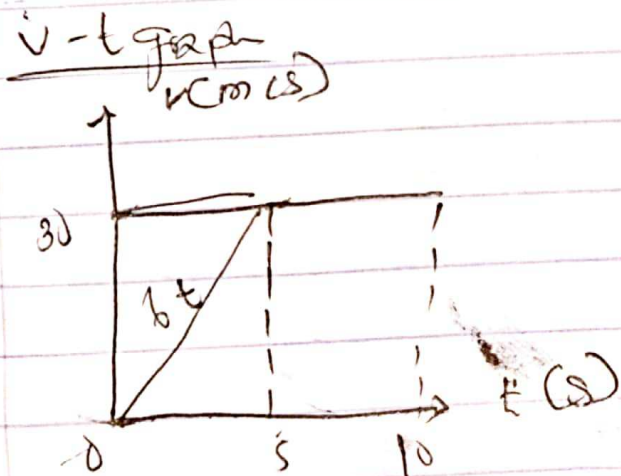 v-t graph
v(m/s)
30
6t
t (s)
0 5 10